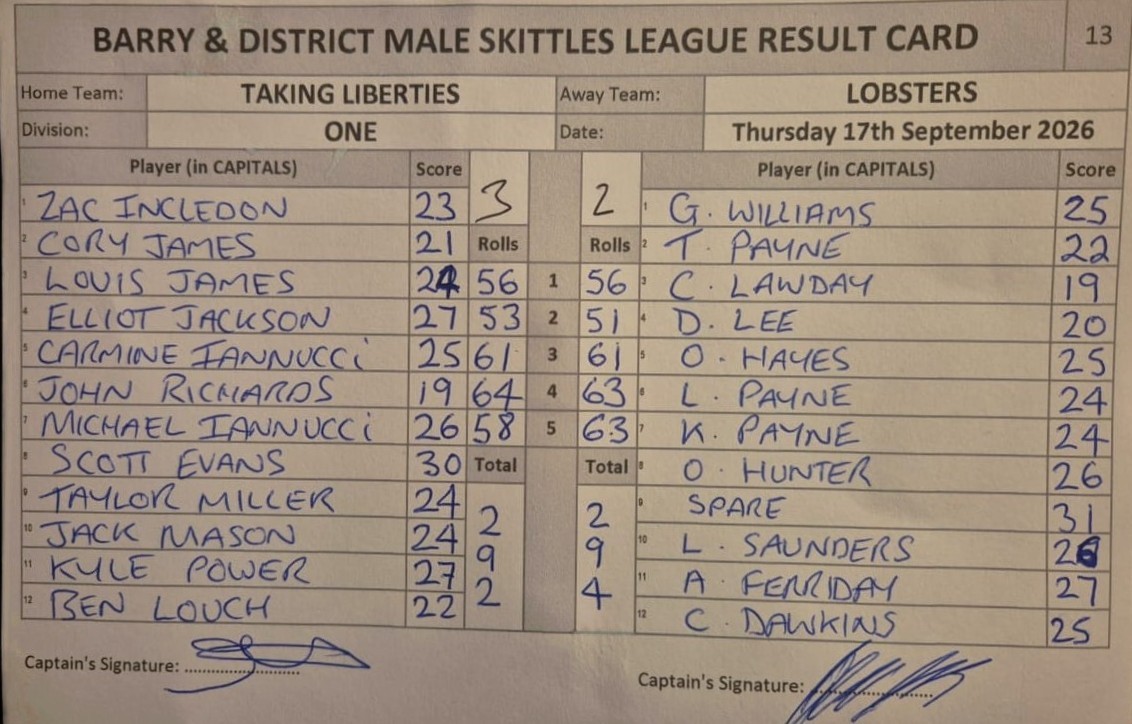 BARRY & DISTRICT MALE SKITTLES LEAGUE RESULT CARD 13
Home Team: TAKING LIBERTIES Away Team: LOBSTERS
Division: ONE Date: Thursday 17th September 2026
Player (in CAPITALS) Score 3 2 Player (in CAPITALS) Score
1 ZAC INCLEDON 23 1 G. WILLIAMS 25
2 CORY JAMES 21 Rolls Rolls 2 T. PAYNE 22
3 LOUIS JAMES 24 56 1 56 3 C. LAWDAY 19
4 ELLIOT JACKSON 27 53 2 51 4 D. LEE 20
5 CARMINE IANNUCCi 25 61 3 61 5 O. HAYES 25
6 JOHN RICHARDS 19 64 4 63 6 L. PAYNE 24
7 MICHAEL IANNUCCi 26 58 5 63 7 K. PAYNE 24
8 SCOTT EVANS 30 Total Total 8 O. HUNTER 26
9 TAYLOR MILLER 24 2 2 9 SPARE 31
10 JACK MASON 24 9 9 10 L. SAUNDERS 26
11 KYLE POWER 27 2 4 11 A FERRIDAY 27
12 BEN LOUCH 22 12 C. DAWKINS 25
Captain's Signature: Captain's Signature: